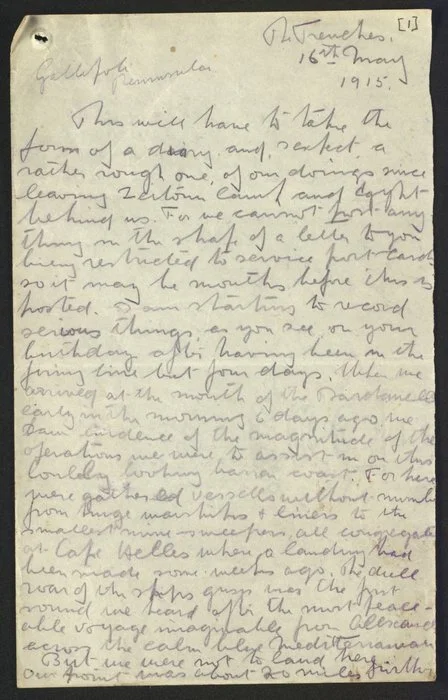 [1]
The Trenches.
16th May
1915.
Gallipoli
Peninsular
This will have to take the
form of a diary and, expect, a
rather rough one, of our doings since
leaving Zeitoun Camp and Egypt
behind us. For we cannot post any
thing in the shape of a letter to you
being restricted to service post cards
so it may be months before this is
posted. I am starting to record
serious things as you see on your
birthday after having been in the
firing line but four days. When we
arrived at the mouth of the Dardanelles
early in the morning 6 days ago we
saw evidence of the magnitude of the
operations we were to assist in on this
lonely looking barren coast. For here
were gathered vessells without number
from huge warships & liners to the
smallest mine-sweepers, all congregated
at Cape Helles where a landing had
been made some weeks ago. The dull
roar of the ships guns was the first
sound we heard after the most peace-
able voyage imaginable from Alexandria
across the calm blue Mediterranean
But we were not to land here.
Our front was about 20 miles further